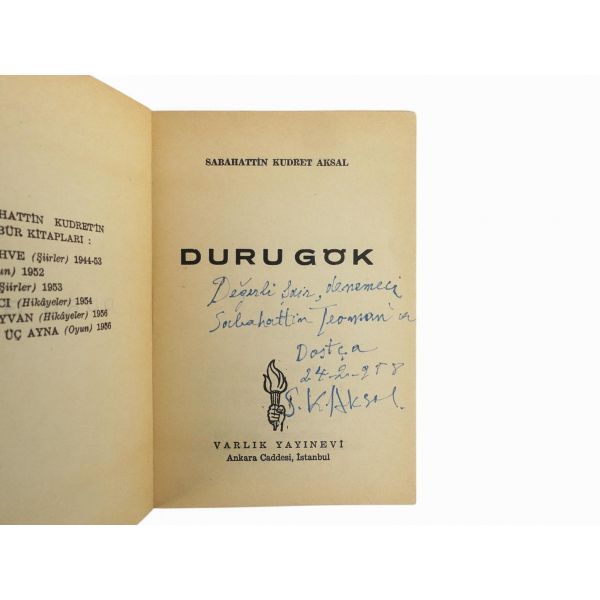 HATTİN KUDRET'İN
BÜR KİTAPLARI :
HVE (Şiirler) 1944-53
un) 1952
Şiirler) 1953
CI (Hikâyeler) 1954
YVAN (Hikâyeler) 1956
ÜÇ AYNA (Oyun) 1956
SABAHATTİN KUDRET AKSAL
DURU GÖK
Değerli Şair, denemeci
Sabahattin Teoman'a
Dostça
24-2-958
S.K.Aksal.
VARLIK YAYINEVİ
Ankara Caddesi, İstanbul